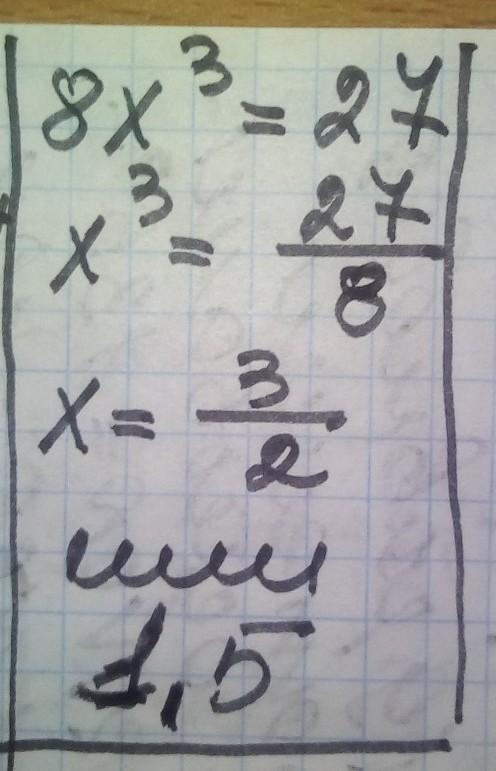 8x³ = 27
x³ = 27/8
x = 3/2
или
1,5